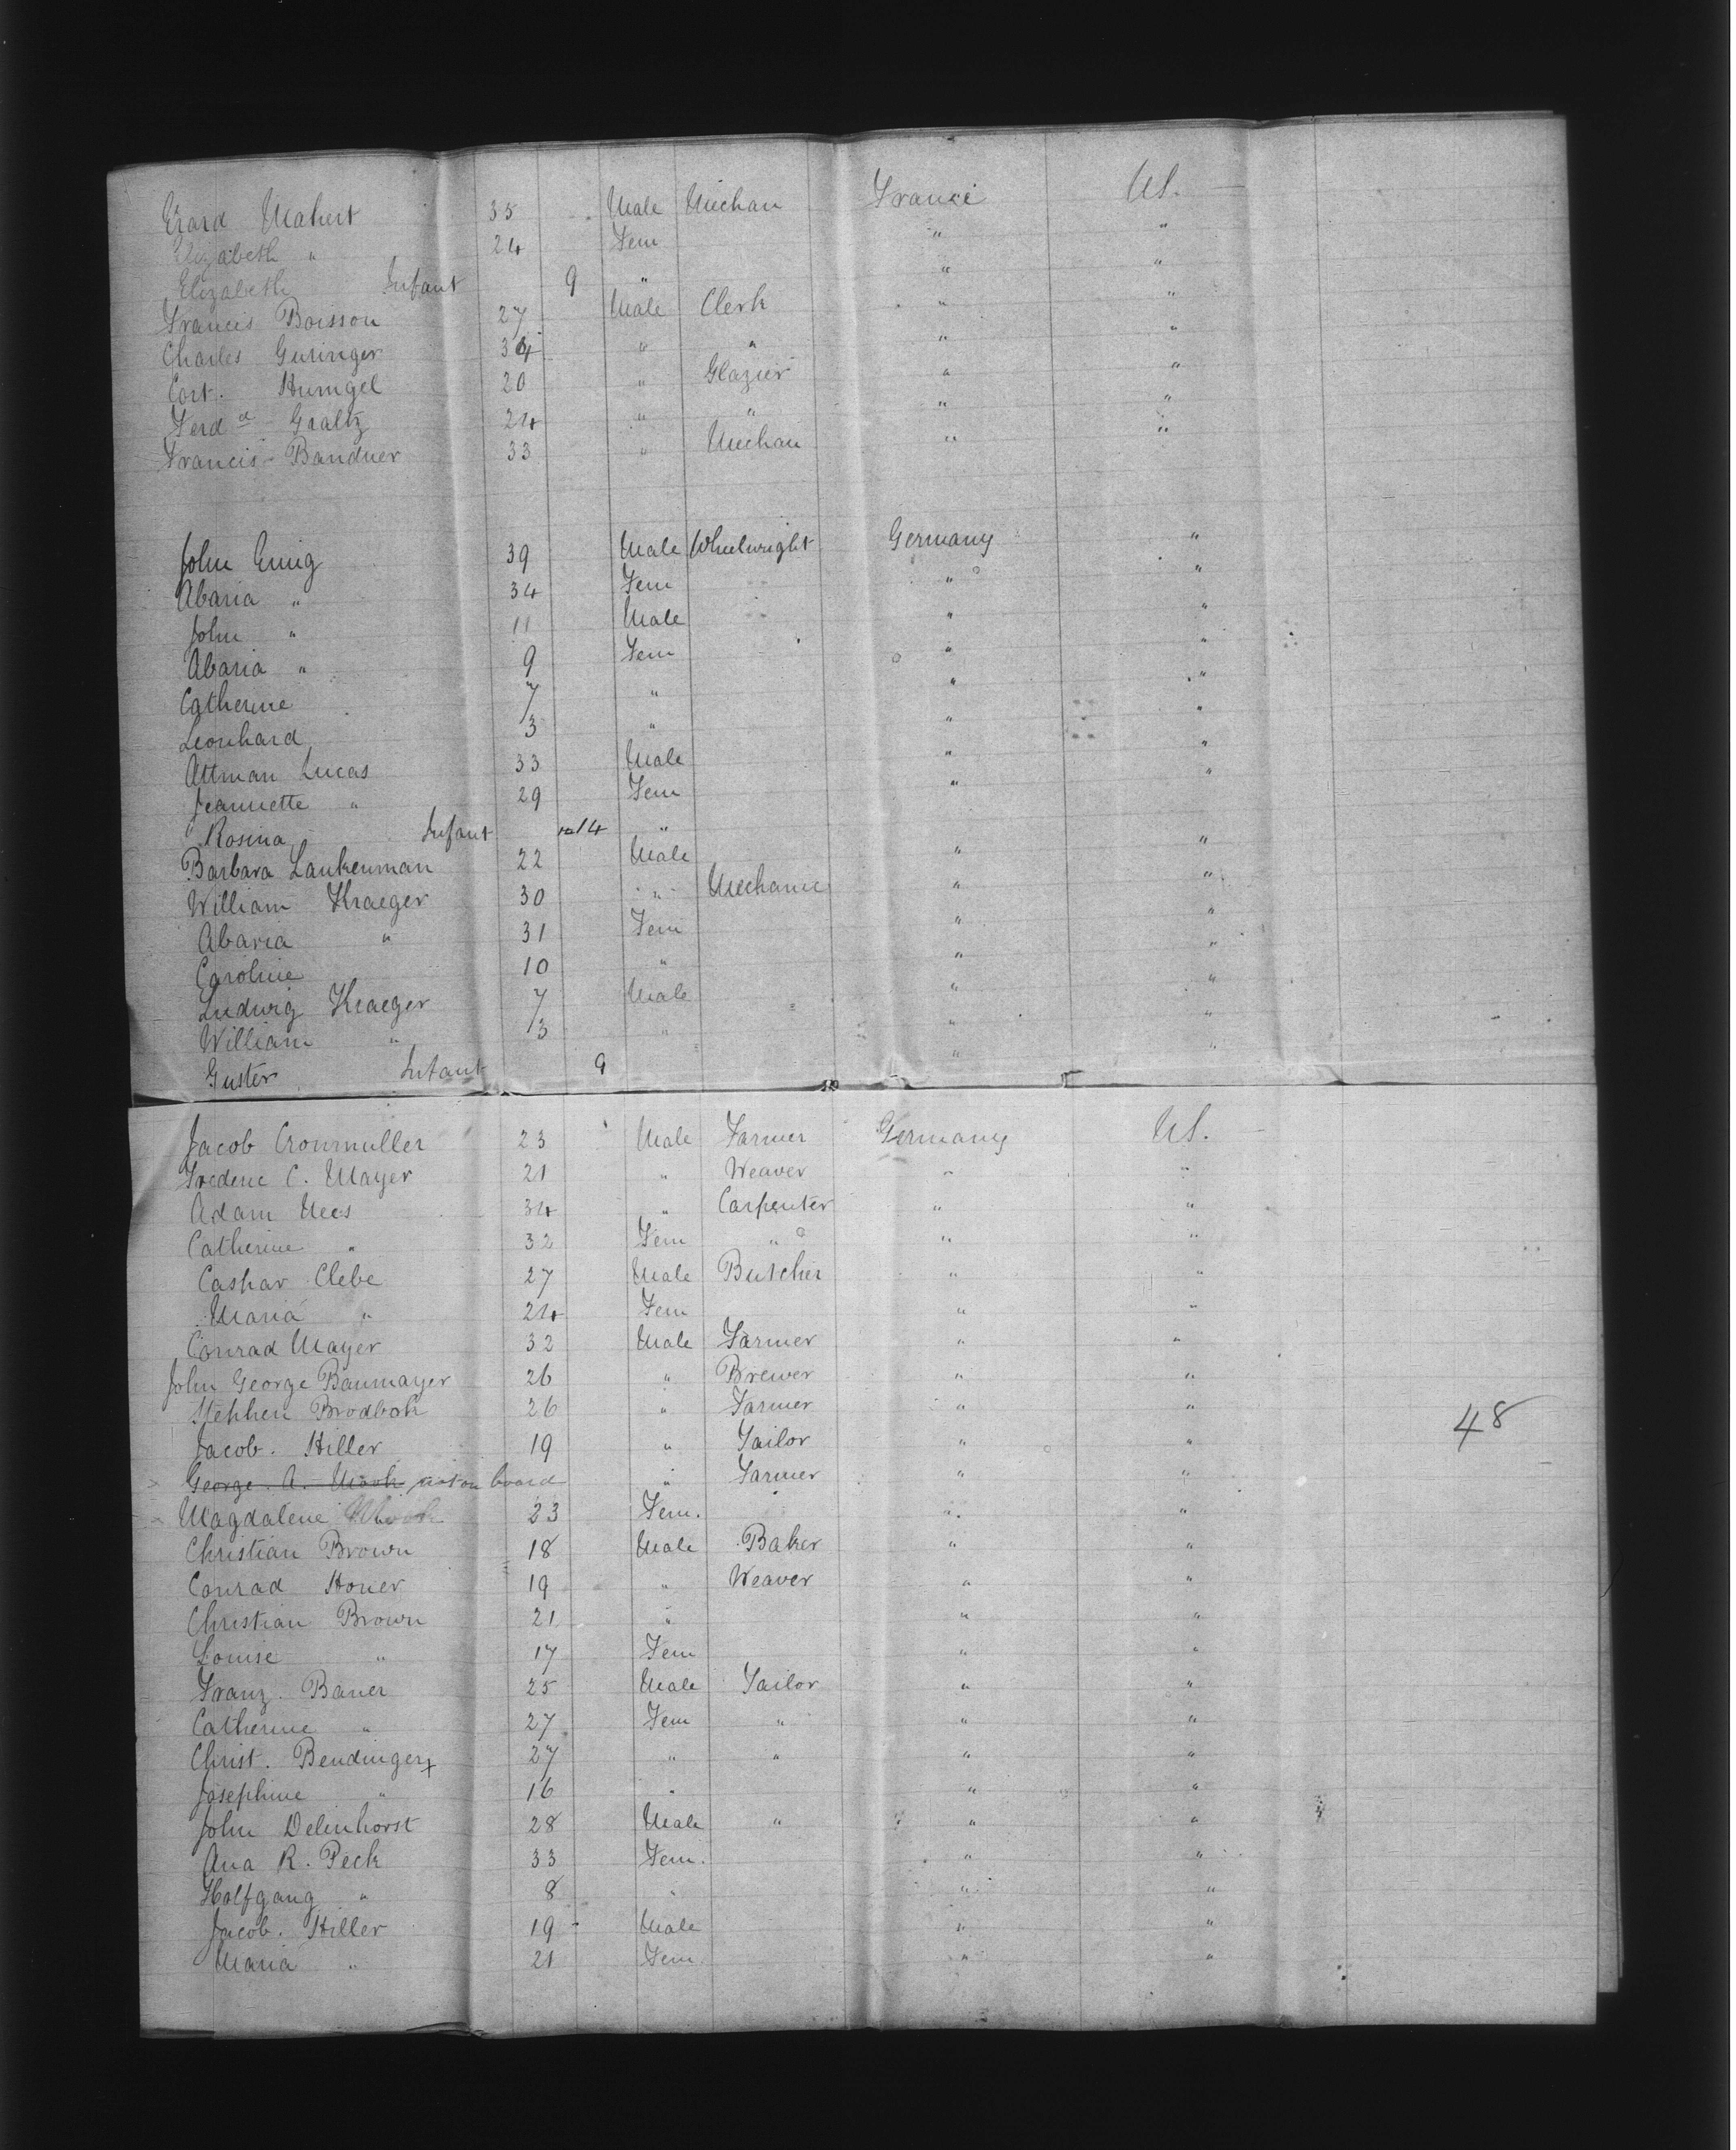 Erard Mahert 35 Male Mechan France U.S.
Elizabeth " 24 Fem " "
Elizabeth Infant 9 " " "
Francis Boisson 27 Male Clerk " "
Charles Guringer 34 " " " "
Cort. Humgel 20 " Glazier " "
Ferd d Graltz 24 " " " "
Francis Bandner 33 " Mechan " "
John Emig 39 Male Wheelwright Germany "
Maria " 34 Fem " "
John " 11 Male " "
Maria " 9 Fem " "
Catherine 7 " " "
Leonhard 3 " " "
Attman Lucas 33 Male " "
Jeannette " 29 Fem " "
Rosina Infant 14 "
Barbara Laukenman 22 Male " "
William Kraeger 30 " Mechanic " "
Maria " 31 Fem " "
Caroline 10 " " "
Ludwig Kraeger 7 Male " "
William " 3 " " "
Guster Infant 9 " "
Jacob Cronmuller 23 Male Farmer Germany U.S.
Frederic C. Mayer 21 " Weaver " "
Adam Mees 34 " Carpenter " "
Catherine " 32 Fem " " "
Caspar Clebe 27 Male Butcher " "
Maria " 24 Fem " "
Conrad Mayer 32 Male Farmer " "
John George Baumayer 26 " Brewer " "
Stephen Brodbek 26 " Farmer " "
48
Jacob. Hiller 19 " Tailor " "
George. A. Mook not on board " Farmer " "
Magdalene Mook 23 Fem. " "
Christian Brown 18 Male Baker " "
Conrad Honer 19 " Weaver " "
Christian Brown 21 " " "
Louise " 17 Fem " "
Franz. Bauer 25 Male Tailor " "
Catherine " 27 Fem " " "
Christ. Bendinger x 27 " " " "
Josephine " 16 " " "
John Delenhorst 28 Male " " "
Ana R. Peck 33 Fem. " "
Holfgang " 8 " " "
Jacob. Hiller 19 Male " "
Maria " 21 Fem. " "